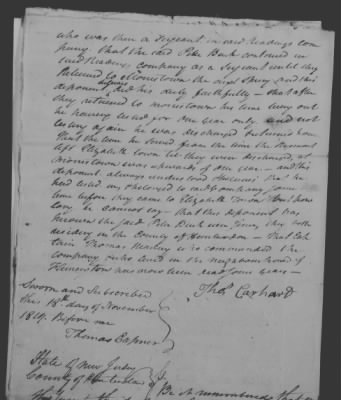 who was then a Sergeant in said Readings com
pany. That the said Peter Bank continued in
said Readings company as a Sergeant until they
returned to Morristown the next Spring and this
deponent did his duty faithfully - that after
they returned to morristown his time being out
he having listed for One year only and not
listing again he was discharged & returned home
That the time he served from the time the Regiment
left Elizabeth Town till they were discharged, at
Morristown was upwards of One year - and this
deponent always understood that he
had listed in said company some
time before they came to Elizabeth Town but how
long he cannot say - that this deponent has
known the said Peter since they both
residing in the County of Hunterdon - that Cap
tain Thomas Reading who commanded the
company lived in the neighbourhood of
Flemington has now been dead some years -
Thos. Carhart
Sworn and Subscribed
this 18th day of November
1819. Before me
Thomas Capner
State of New Jersey
County of Hunterdon
Be it remembered that on